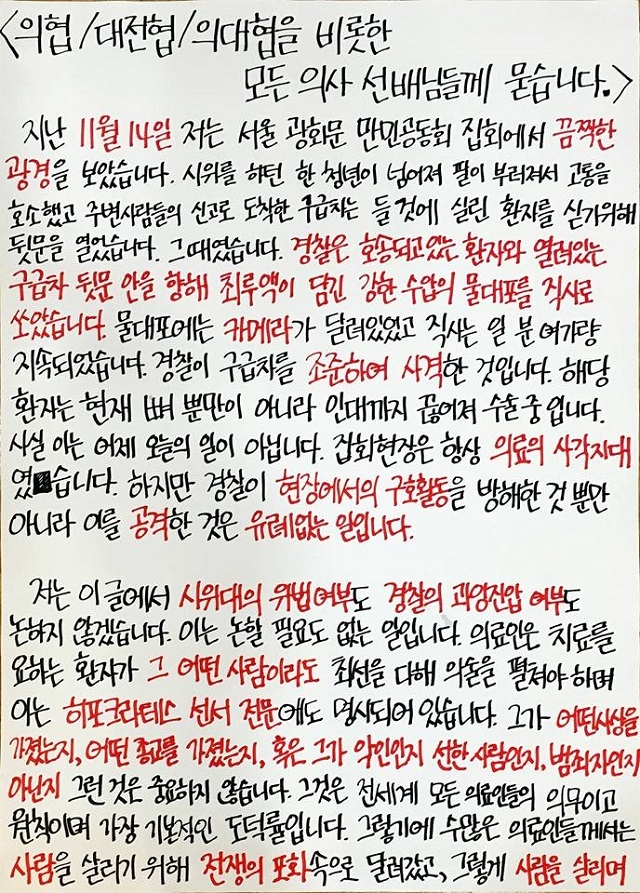 <의협/대전협/의대협을 비롯한
모든 의사 선배님들께 묻습니다.>
지난 11월 14일 저는 서울 광화문 만민공동회 집회에서 끔찍한
광경을 보았습니다. 시위를 하던 한 청년이 넘어져 팔이 부러져서 고통을
호소했고 주변사람들의 신고로 도착한 구급차는 들것에 실린 환자를 싣기위해
뒷문을 열었습니다. 그때였습니다. 경찰은 호송되고있는 환자와 열려있는
구급차 뒷문 안을 향해 최루액이 담긴 강한 수압의 물대포를 직사로
쏘았습니다. 물대포에는 카메라가 달려있었고 직사는 일 분 여가량
지속되었습니다. 경찰이 구급차를 조준하여 사격한 것입니다. 해당
환자는 현재 뼈 뿐만이 아니라 인대까지 끊어져 수술 중입니다.
사실 이는 어제 오늘의 일이 아닙니다. 집회현장은 항상 의료의 사각지대
였습니다. 하지만 경찰이 현장에서의 구호활동을 방해한 것 뿐만
아니라 이를 공격한 것은 유례없는 일입니다.
저는 이 글에서 시위대의 위법여부도 경찰의 과잉진압 여부도
논하지 않겠습니다. 이는 논할 필요도 없는 일입니다. 의료인은 치료를
요하는 환자가 그 어떤 사람이라도 최선을 다해 의술을 펼쳐야 하며
이는 히포크라테스 선서 전문에도 명시되어 있습니다. 그가 어떤사상을
가졌는지, 어떤 종교를 가졌는지, 혹은 그가 악인인지 선한 사람인지, 범죄자인지
아닌지 그런 것은 중요하지 않습니다. 그것은 전세계 모든 의료인들의 의무이고
원칙이며 가장 기본적인 도덕률입니다. 그렇기에 수많은 의료인들께서는
사람을 살리기 위해 전쟁의 포화속으로 달려갔고, 그렇게 사람을 살리며